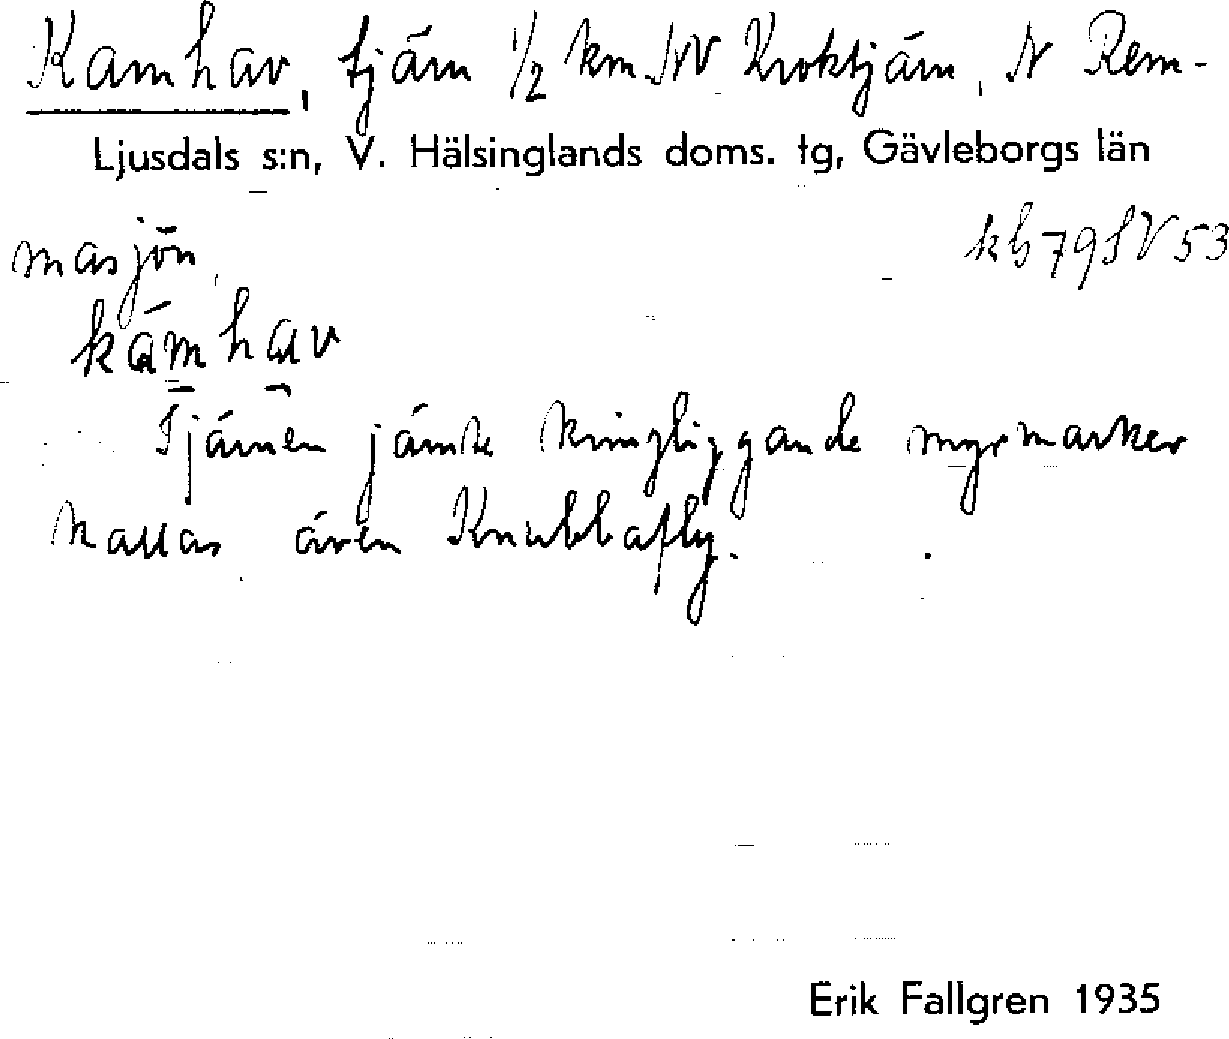 Kamhav, tjärn 1/2 km NV Kroktjärn, N Rem-
Ljusdals s:n, V. Hälsinglands doms. tg, Gävleborgs län
masjön.
kb 79 SV 53
kámhav
Tjärnen jämte kringliggande myrmarker
kallas även Knubbafly.
Erik Fallgren 1935